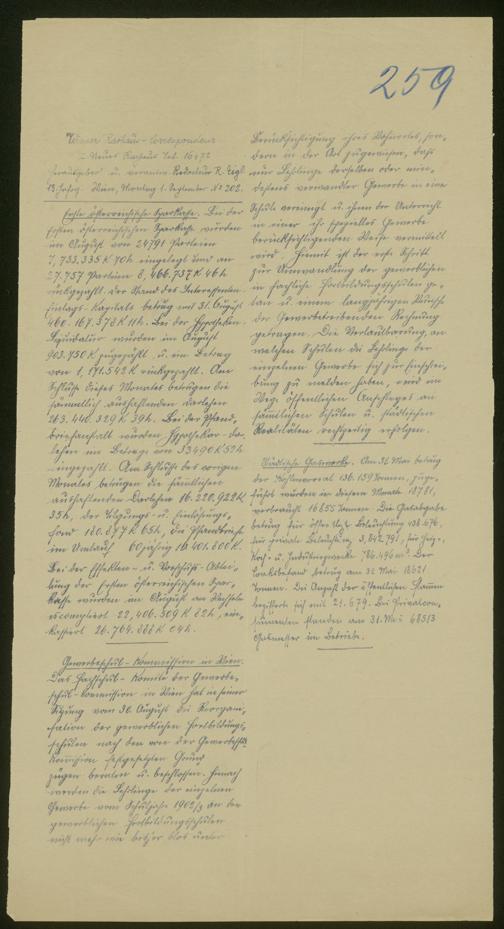 259
Wiener Rathaus-Correspondenz
I. Neues Rathaus Tel. 16172
Herausgeber u. verantw. Redacteur R. Zegl
13. Jahrg. Wien, Montag 1. September No 202.
Erste österreichische Sparkasse. Bei der
Ersten österreichischen Sparkasse wurden
im August von 24791 Parteien
7,733.335 K 70h eingelegt und an
27.757 Parteien 8,466.737 K 46h
rückgezahlt. Der Stand des Interessenten-
Einlags-Kapitals betrug mit 31. August
460.167.372 K 11h. Bei der Hypotheken
Liquidatur wurden im August
903.750 K zugezählt u. ein Betrag
von 1,171.542 K rückgezahlt. Am
Schlusse dieses Monates betrugen die
sämmtlich aushaftenden Darlehen
263.440.329 K 39h. Bei der Pfand-
briefanstalt wurden Hypothekar-Dar-
lehen im Betrage von 33490 K 52h
eingezahlt. Am Schlusse des vorigen
Monates betrugen die sämmtlichen
aushaftenden Darlehen 16.228,922 K
35h, der Tilgungs- u. Einlösungs-
fond 180.877 K 65h, die Pfandbriefe
im Umlauf 60jährig
Bei der Effekten- u. Vorschuß-Abtei-
lung der Ersten österreichischen Spar-
kasse wurden im August an Wechseln
escomptirt 22,406.509 K 82h, ein-
kassiert 26.764.888 K 04h.
Gewerbeschul-Kommission in Wien.
Das Fachschul-Komite der Gewerbe-
schul-Commission in Wien hat in seiner
Sitzung vom 30. August die Reorgani-
sation der gewerblichen Fortbildungs-
schulen nach den von der Gewerbeschul
Komission festgesetzten Grund
zügen beraten u. beschlossen. Hienach
werden die Lehrlinge der einzelnen
Gewerbe vom Schuljahr 1902/3 an den
gewerblichen Fortbildungsschulen
nicht mehr wie bisher blos unter
Berücksichtigung ihres Wohnortes, son-
dern in der Art zugewiesen, daß
nur Lehrlinge derselben oder min-
destens verwandter Gewerbe in eine
Schule vereinigt u. ihnen der Unterricht
in einer ihr spezielles Gewerbe
berücksichtigenden Weise vermittelt
wird. Hiemit ist der erste Schritt
zur Umwandlung der gewerblichen
in fachliche Fortbildungsschulen ge-
tan u. einem langjährigen Wunsche
der Gewerbetreibenden Rechnung
getragen. Die Verlautbarung, an
welchen Schulen die Lehrlinge der
einzelnen Gewerbe sich zur Einschrei-
bung zu melden haben, wird im
Weg öffentlichen Anschlages an
sämmtlichen Schulen u. städtischen
Realitäten rechtzeitig erfolgen.
Städtische Gaswerke. Am 31. Mai betrug
der Kohlenvorrat 136.159 Tonnen, zuge-
führt wurden in diesem Monate 18781,
verbraucht 16855 Tonnen. Die Gasabgabe
betrug für öffentliche Beleuchtung 438.676,
für private Beleuchtung 3,842.791, für Heiz-
Koch- u. Industriezwecke 786.496 m3. Der
Coaksbestand betrug am 31. Mai 18621
Tonnen. Die Anzahl der öffentlichen Flammen
bezifferte sich mit 21.679. Bei Privatcon-
sumenten standen am 31. Mai 68513
Gasmesser im Betriebe.